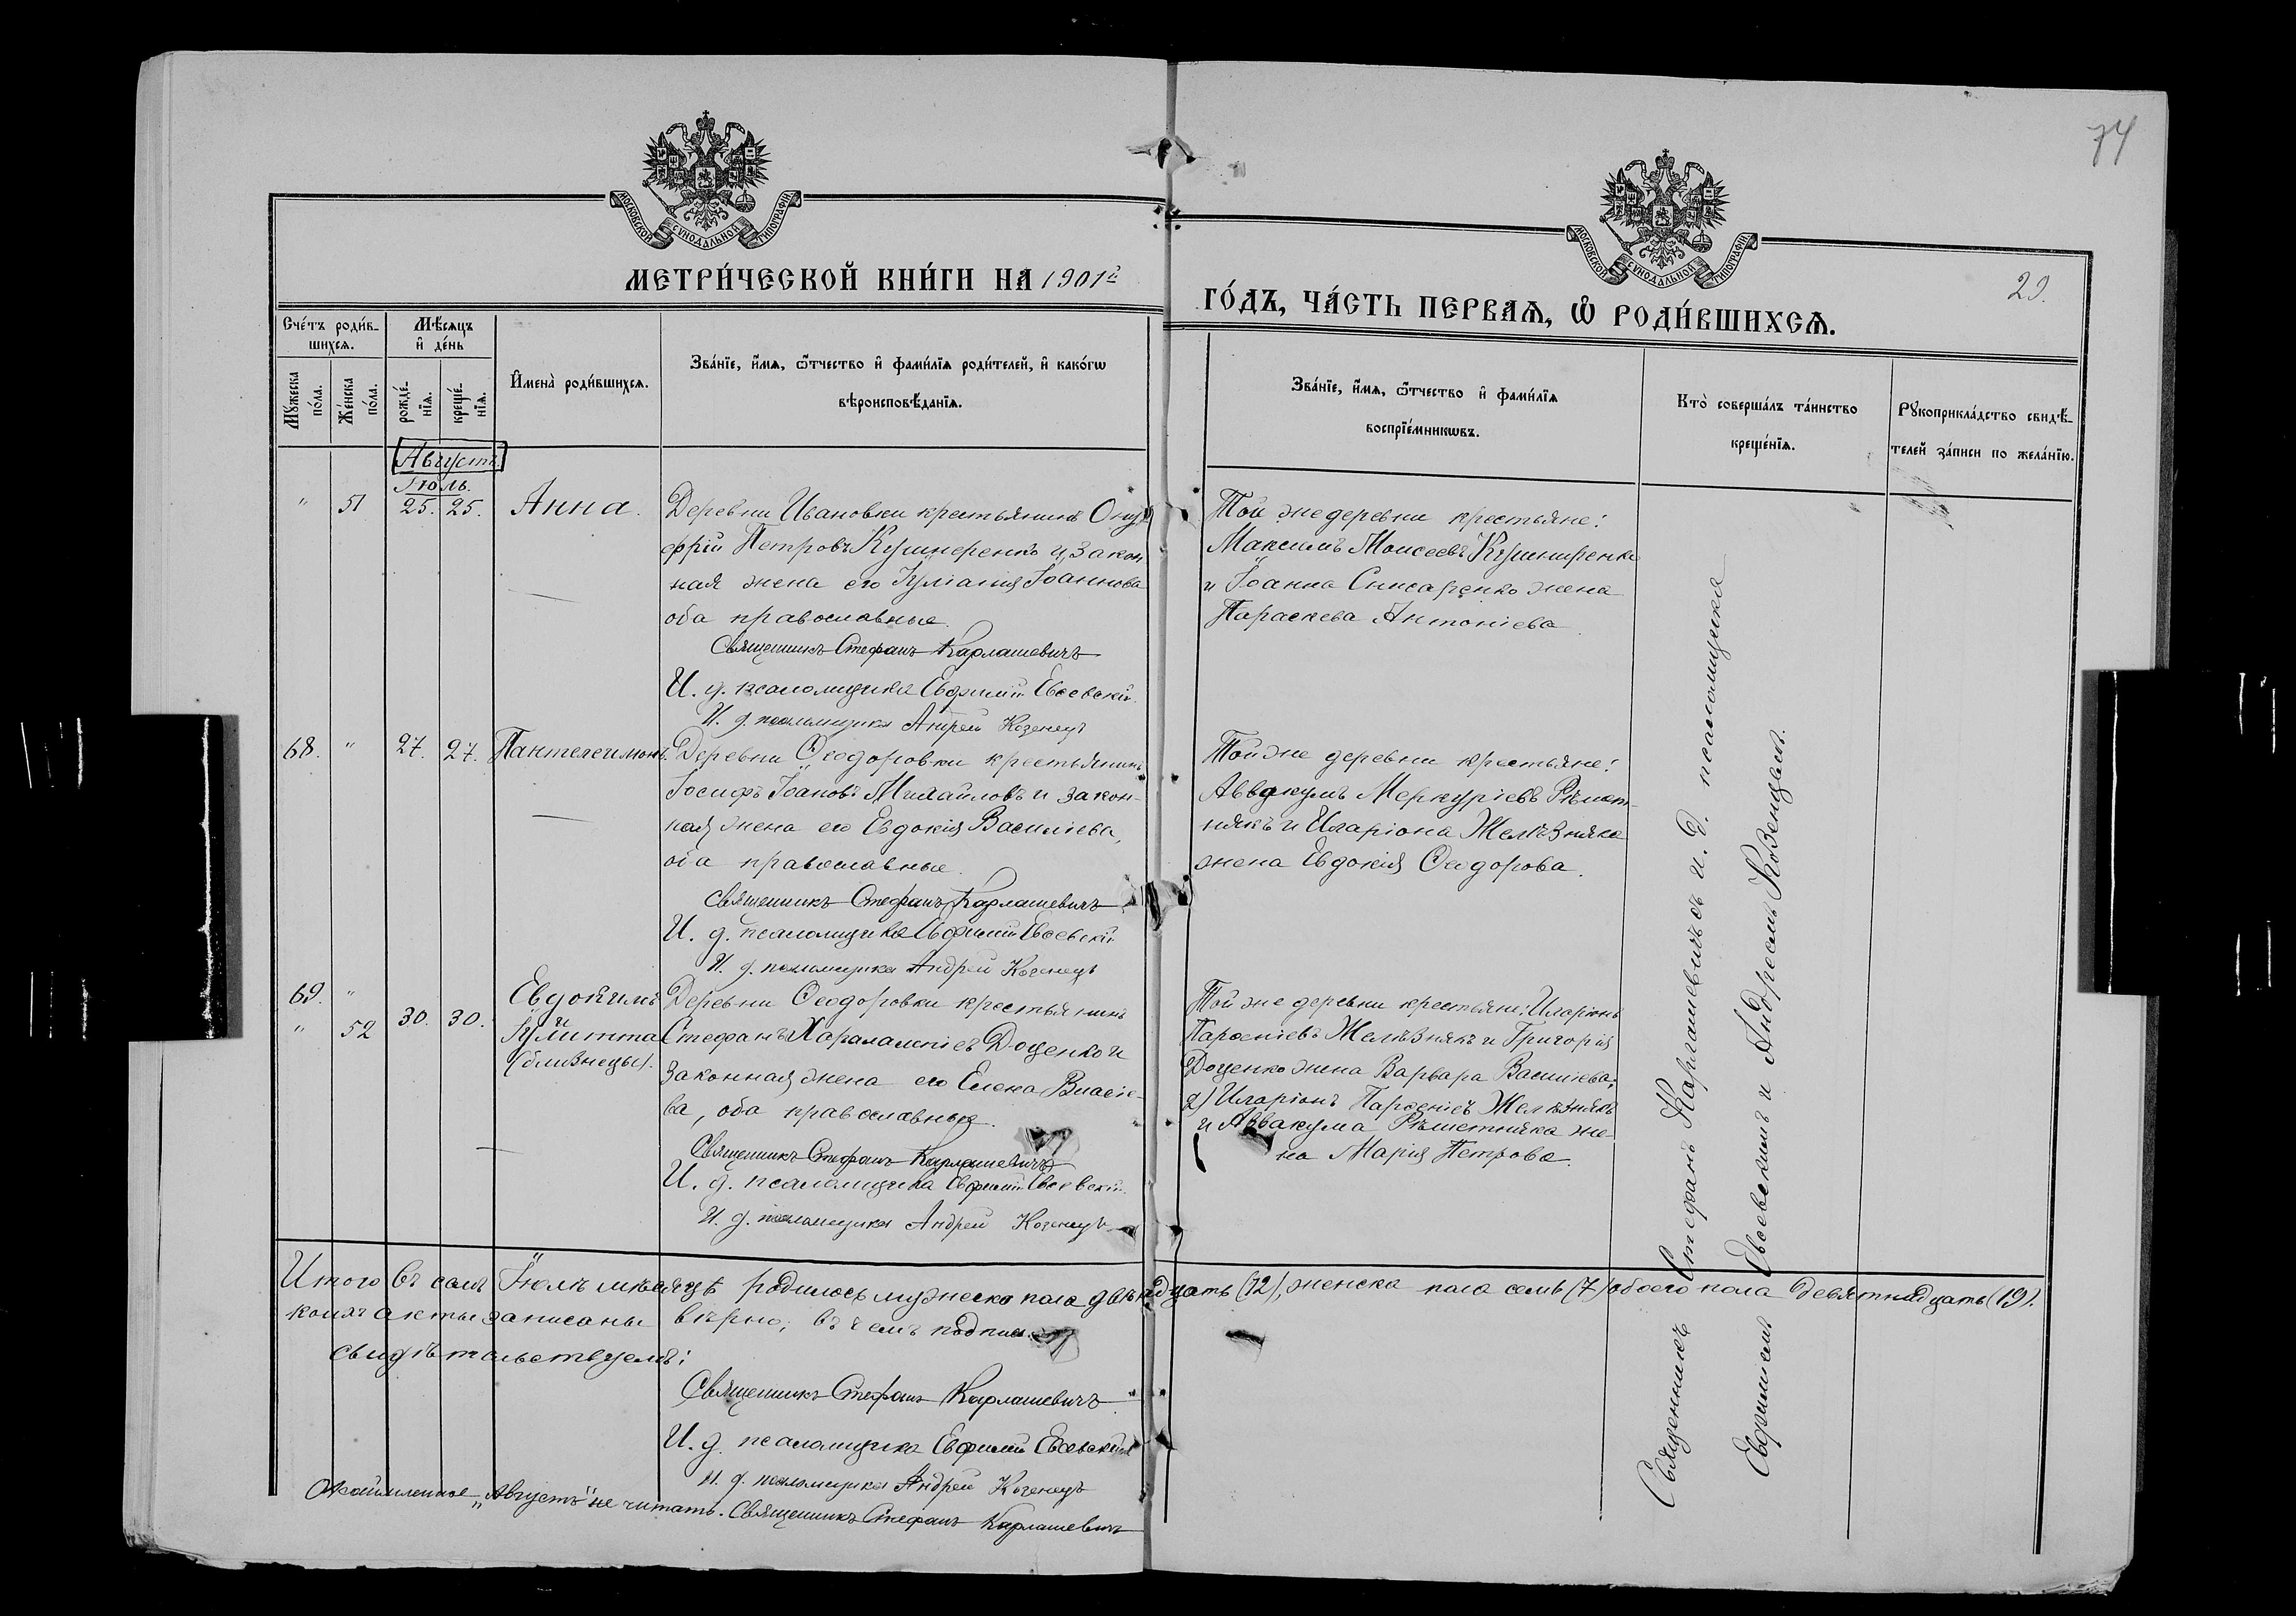 74
МОСКОВСКОЙ СѴНОДАЛЬНОЙ ТИПОГРАФІИ
МОСКОВСКОЙ СѴНОДАЛЬНОЙ ТИПОГРАФІИ
МЕТРИ́ЧЕСКОЙ КНИ́ГИ НА 1901й
ГО́ДЪ, ЧА́СТЬ ПЕРВАѦ, Ѡ РОДИ́ВШИХСѦ.
29.
Сче́тъ роди́в-
шихсѧ.
Мѣ́сѧцъ
и҆ де́нь
Мꙋ́жеска
по́ла.
Же́нска
по́ла.
рожде́-
нїѧ.
креще́-
нїѧ.
И҆мена̀ роди́вшихсѧ.
Зва́нїе, и҆́мѧ, ѻ҆́тчество и҆ фами́лїѧ роди́телей, и҆ како́гѡ
вѣроисповѣ́данїѧ.
Зва́нїе, и҆́мѧ, ѻ҆́тчество и҆ фами́лїѧ
воспрїе́мникѡвъ.
Кто̀ соверша́лъ та́инство
креще́нїѧ.
Рꙋкоприкла́дство свидѣ́-
телей за́писи по жела́нїю.
Августъ
Іюль.
" 51 25. 25. Анна.
Деревни Ивановки крестьянинъ Ону-
фрій Петровъ Кушнеренко и закон-
ная жена его Іуліанія Іоаннова
оба православные.
Священникъ Стефанъ Карлашевичъ
И. д. псаломщика Евфимій Евсевскій
И. д. псаломщика Андрей Козенецъ
Той же деревни крестьяне:
Максимъ Моисеевъ Кушниренко
и Іоанна Снисаренко жена
Параскева Антоніева.
68. " 27. 27. Пантелеимонъ.
Деревни Ѳеодоровки крестьянинъ
Іосифъ Іоановъ Михайловъ и закон-
ная жена его Евдокія Василіева,
оба православные.
Священникъ Стефанъ Карлашевичъ
И. д. псаломщика Евфимій Евсевскій
И. д. псаломщика Андрей Козенецъ
Той же деревни крестьяне:
Аввакумъ Меркуріевъ Рѣшет-
някъ и Иларіона Желѣзняка
жена Евдокія Ѳеодорова.
69. " Евдокимъ
" 52 30. 30. Іулитта
(близнецы).
Деревни Ѳеодоровки крестьянинъ
Стефанъ Харалампіевъ Доценко и
законная жена его Елена Власіе-
ва, оба православные.
Священникъ Стефанъ Карлашевичъ
И. д. псаломщика Евфимій Евсевскій
И. д. псаломщика Андрей Козенецъ
Той же деревни крестьяне: Иларіонъ
Парѳеніевъ Желѣзнякъ и Григорія
Доценко жена Варвара Василіева;
2) Иларіонъ Парѳеніевъ Желѣзнякъ
и Аввакума Рѣшетняка же-
на Марія Петрова.
Священникъ Стефанъ Карлашевичъ съ и. д. псаломщика
Евфиміемъ Евсевскимъ и Андреемъ Козенцемъ.
Итого въ семъ Іюлѣ мѣсяцѣ родилось мужеска пола двѣнадцать (12), женска пола семь (7) обоего пола девятнадцать (19).
коихъ акты записаны вѣрно; въ чемъ подписомъ
свидѣтельствуемъ:
Священникъ Стефанъ Карлашевичъ
И. д. псаломщика Евфимій Евсевскій
И. д. псаломщика Андрей Козенецъ
Окаймленное „Августъ" не читать. Священникъ Стефанъ Карлашевичъ